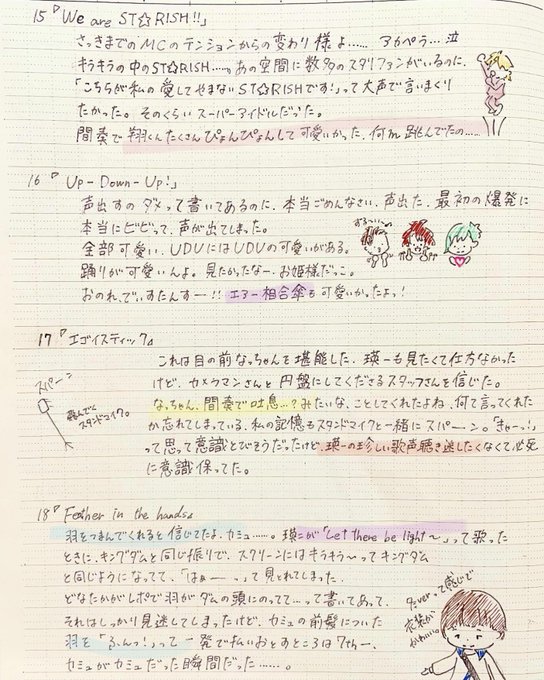 15『We are ST☆RISH!!』
さっきまでのMCのテンションからの変わり様よ…… アカペラ… 泣
キラキラの中のST☆RISH……っ あの空間に数多のスタリファンがいるのに、
「こちらが私の愛してやまないST☆RISHです!」って大声で言いまくり
たかった。そのくらいスーパーアイドルだった。
間奏で翔くんたくさんぴょんぴょんして可愛いかった、何回跳んでたの……
16『Up-Down-Up!』
声出すのダメって書いてあるのに、本当ごめんなさい、声出た、最初の爆発に
本当にビビって、声が出てしまった。
全部可愛い、UDUにはUDUの可愛いがある。
踊りが可愛いんよ。見たかったなー、お姫様だっこ。
おのれ、でぃすたんすー!! エアー相合傘も可愛いかったよっ!
17『エゴイスティック』
これは目の前なっちゃんを堪能した、瑛一も見たくて仕方なかった
けど、カメラマンさんと円盤にしてくださるスタッフさんを信じた。
なっちゃん、間奏で吐息…?みたいな、ことしてくれたよね、何て言ってくれた
か忘れてしまっている、私の記憶もスタンドマイクと一緒にスパーン。「きゅーっ!」
って思って意識とびそうだったけど、瑛一の珍しい歌声聴き逃したくなくて必死
に意識保ってた。
スパーン
飛んでく
スタンドマイク。
18『Feather in the hands』
羽をつまんでくれると信じてたよ、カミュ……。瑛二が「Let there be light〜」って歌った
ときに、キングダムと同じ振りで、スクリーンにはキラキラ〜ってキングダム
と同じようになってて、「はぁーーっ」って見とれてしまった。
どなたかがレポで羽がダムの頭にのってて…って書いてあって、
それはしっかり見逃してしまったけど、カミュの前髪についた
羽を「ふんっ!」って一発で払いおとすところは7thー、
カミュがカミュだった瞬間だった……。
って感じで
衣装が
かわいい